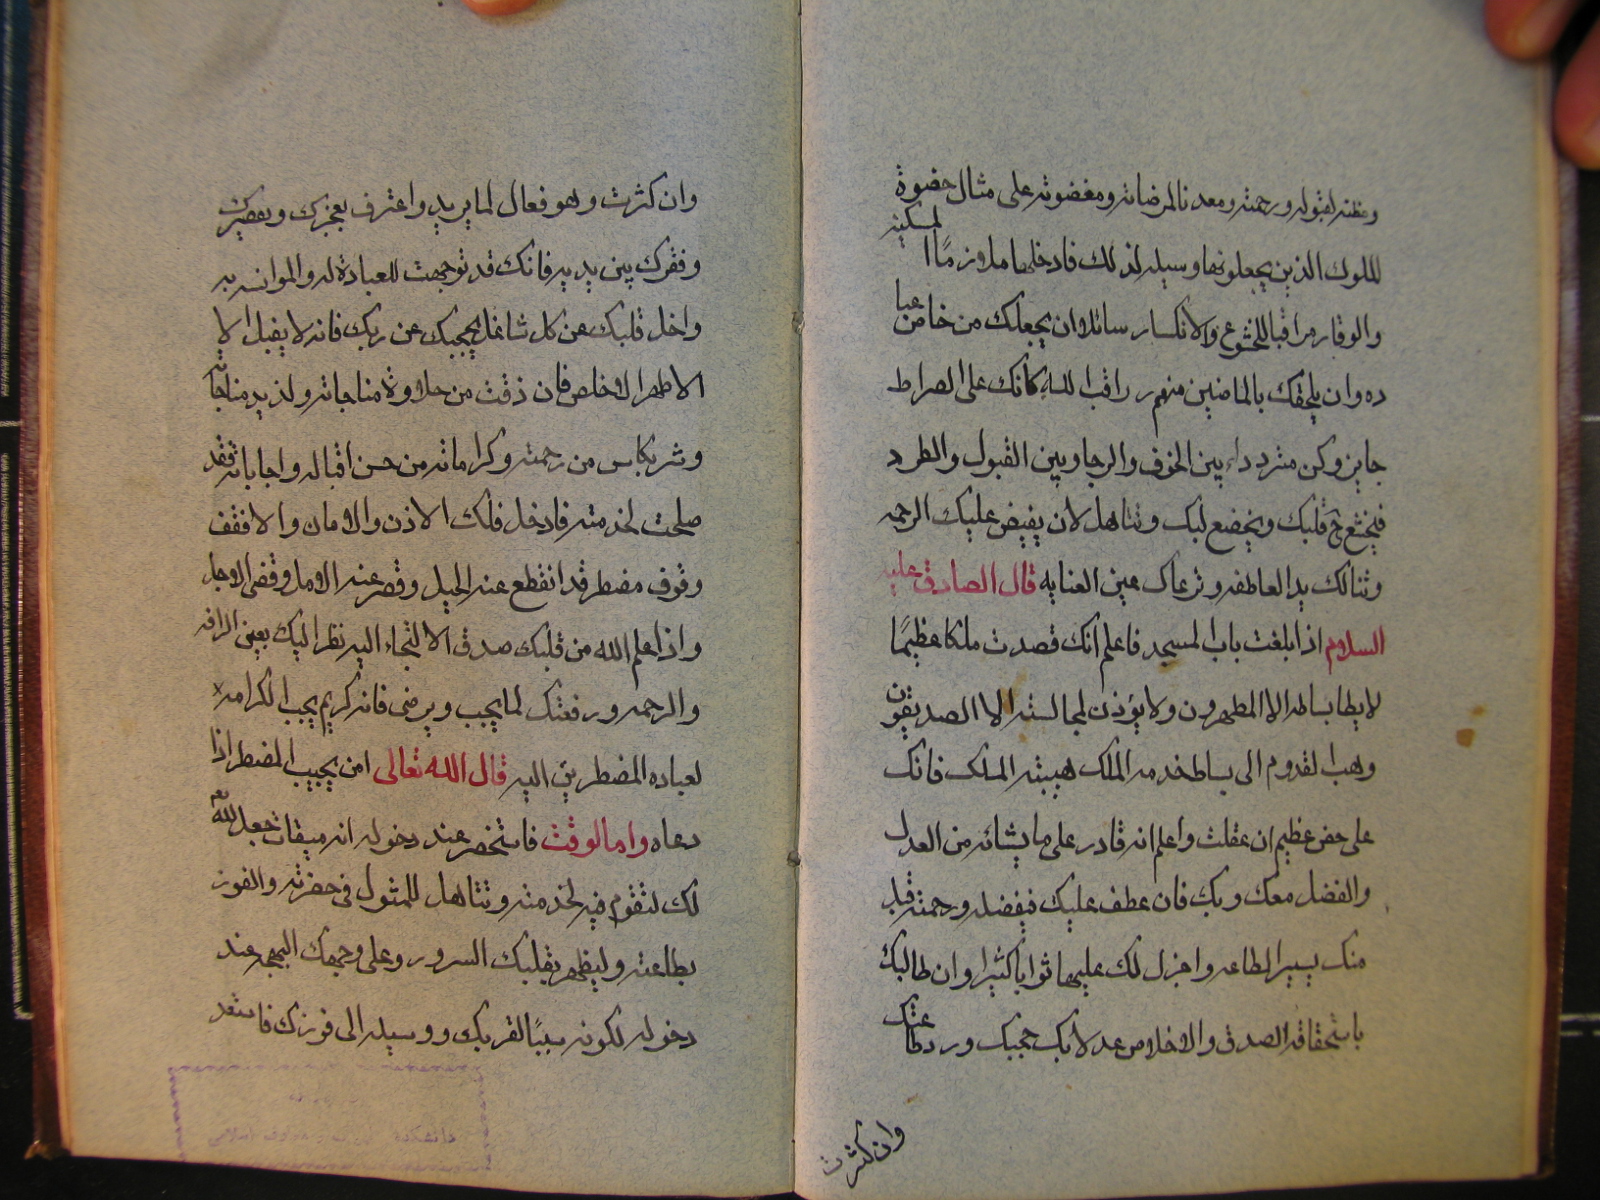 ومظنه لقبوله ورحمته ومعدنا لمرضاته ومغفوته على مثال حضوة
للملوك الذين يجعلونها وسيله لذلك فادخلها ملازمًا السكينه
والوقار مراقبا للخشوع والانكسار سائلا ان يجعلك من خاص عبا
ده وان يلحقك بالماضين منهم راقب الله كانك على الصراط
جايز وكن مترددا بين الخوف والرجا وبين القبول والطرد
فيخشع ح قلبك ويخضع لبك وتتاهل لان يفيض عليك الرحمه
وتنالك يد العاطفه وترعاك عين العنايه قال الصادق عليه
السلام اذا بلغت باب المسجد فاعلم انك قصدت ملكا عظيمًا
لا يطا بساطه الا المطهرون ولا يؤذن لمجالسته الا الصديقون
وهب القدوم الى بساط خدمه الملك هيبته الملك فانك
على خطر عظيم ان عقلت واعلم انه قادر على ما يشائه من العدل
والفضل معك وبك فان عطف عليك فبفضله ورحمته قبل
منك يسير الطاعه واجزل لك عليها ثوابا كثيرا وان طالبك
باستحقاقه الصدق والاخلاص عدلا بك حجبك ورد طاعتك
وان كثرت
وان كثرت وهو فعال لما يريد واعترف بعجزك وتقصيرك
وفقرك بين يديه فانك قد توجهت للعبادة له والموانسه به
واخل قلبك عن كل شاغل يحجبك عن ربك فانه لا يقبل الا
الاطهر الاخلص فان ذقت من حلاوة مناجاته ولذيد مناجاته
وشربكاس من رحمته وكراماته من حسن اقباله واجاباته فقد
صلحت لخدمته فادخل فلك الاذن والامان والا فقف
وقوف مضطر قد انقطع عنه الحيل وقصر عنه الامل وقضى الاجل
واذا علم الله من قلبك صدق الالتجاء اليه نظر اليك بعين الرافه
والرحمه ورفعتك لما يحب ويرضى فانه كريم يحب الكرامه
لعباده المضطرين اليه قال الله تعالى امن يجيب المضطر اذا
دعاه واما الوقت فاستحضر عند دخوله انه ميقات جعل الله تعم
لك لتقوم فيه لخدمته وتتاهل للمثول في حضرته والفوز
بطاعته وليظهر بقلبك السرور وعلى وجهك البهجه عند
دخوله لكونه سببًا لقربك ووسيله الى فوزك فاستعد